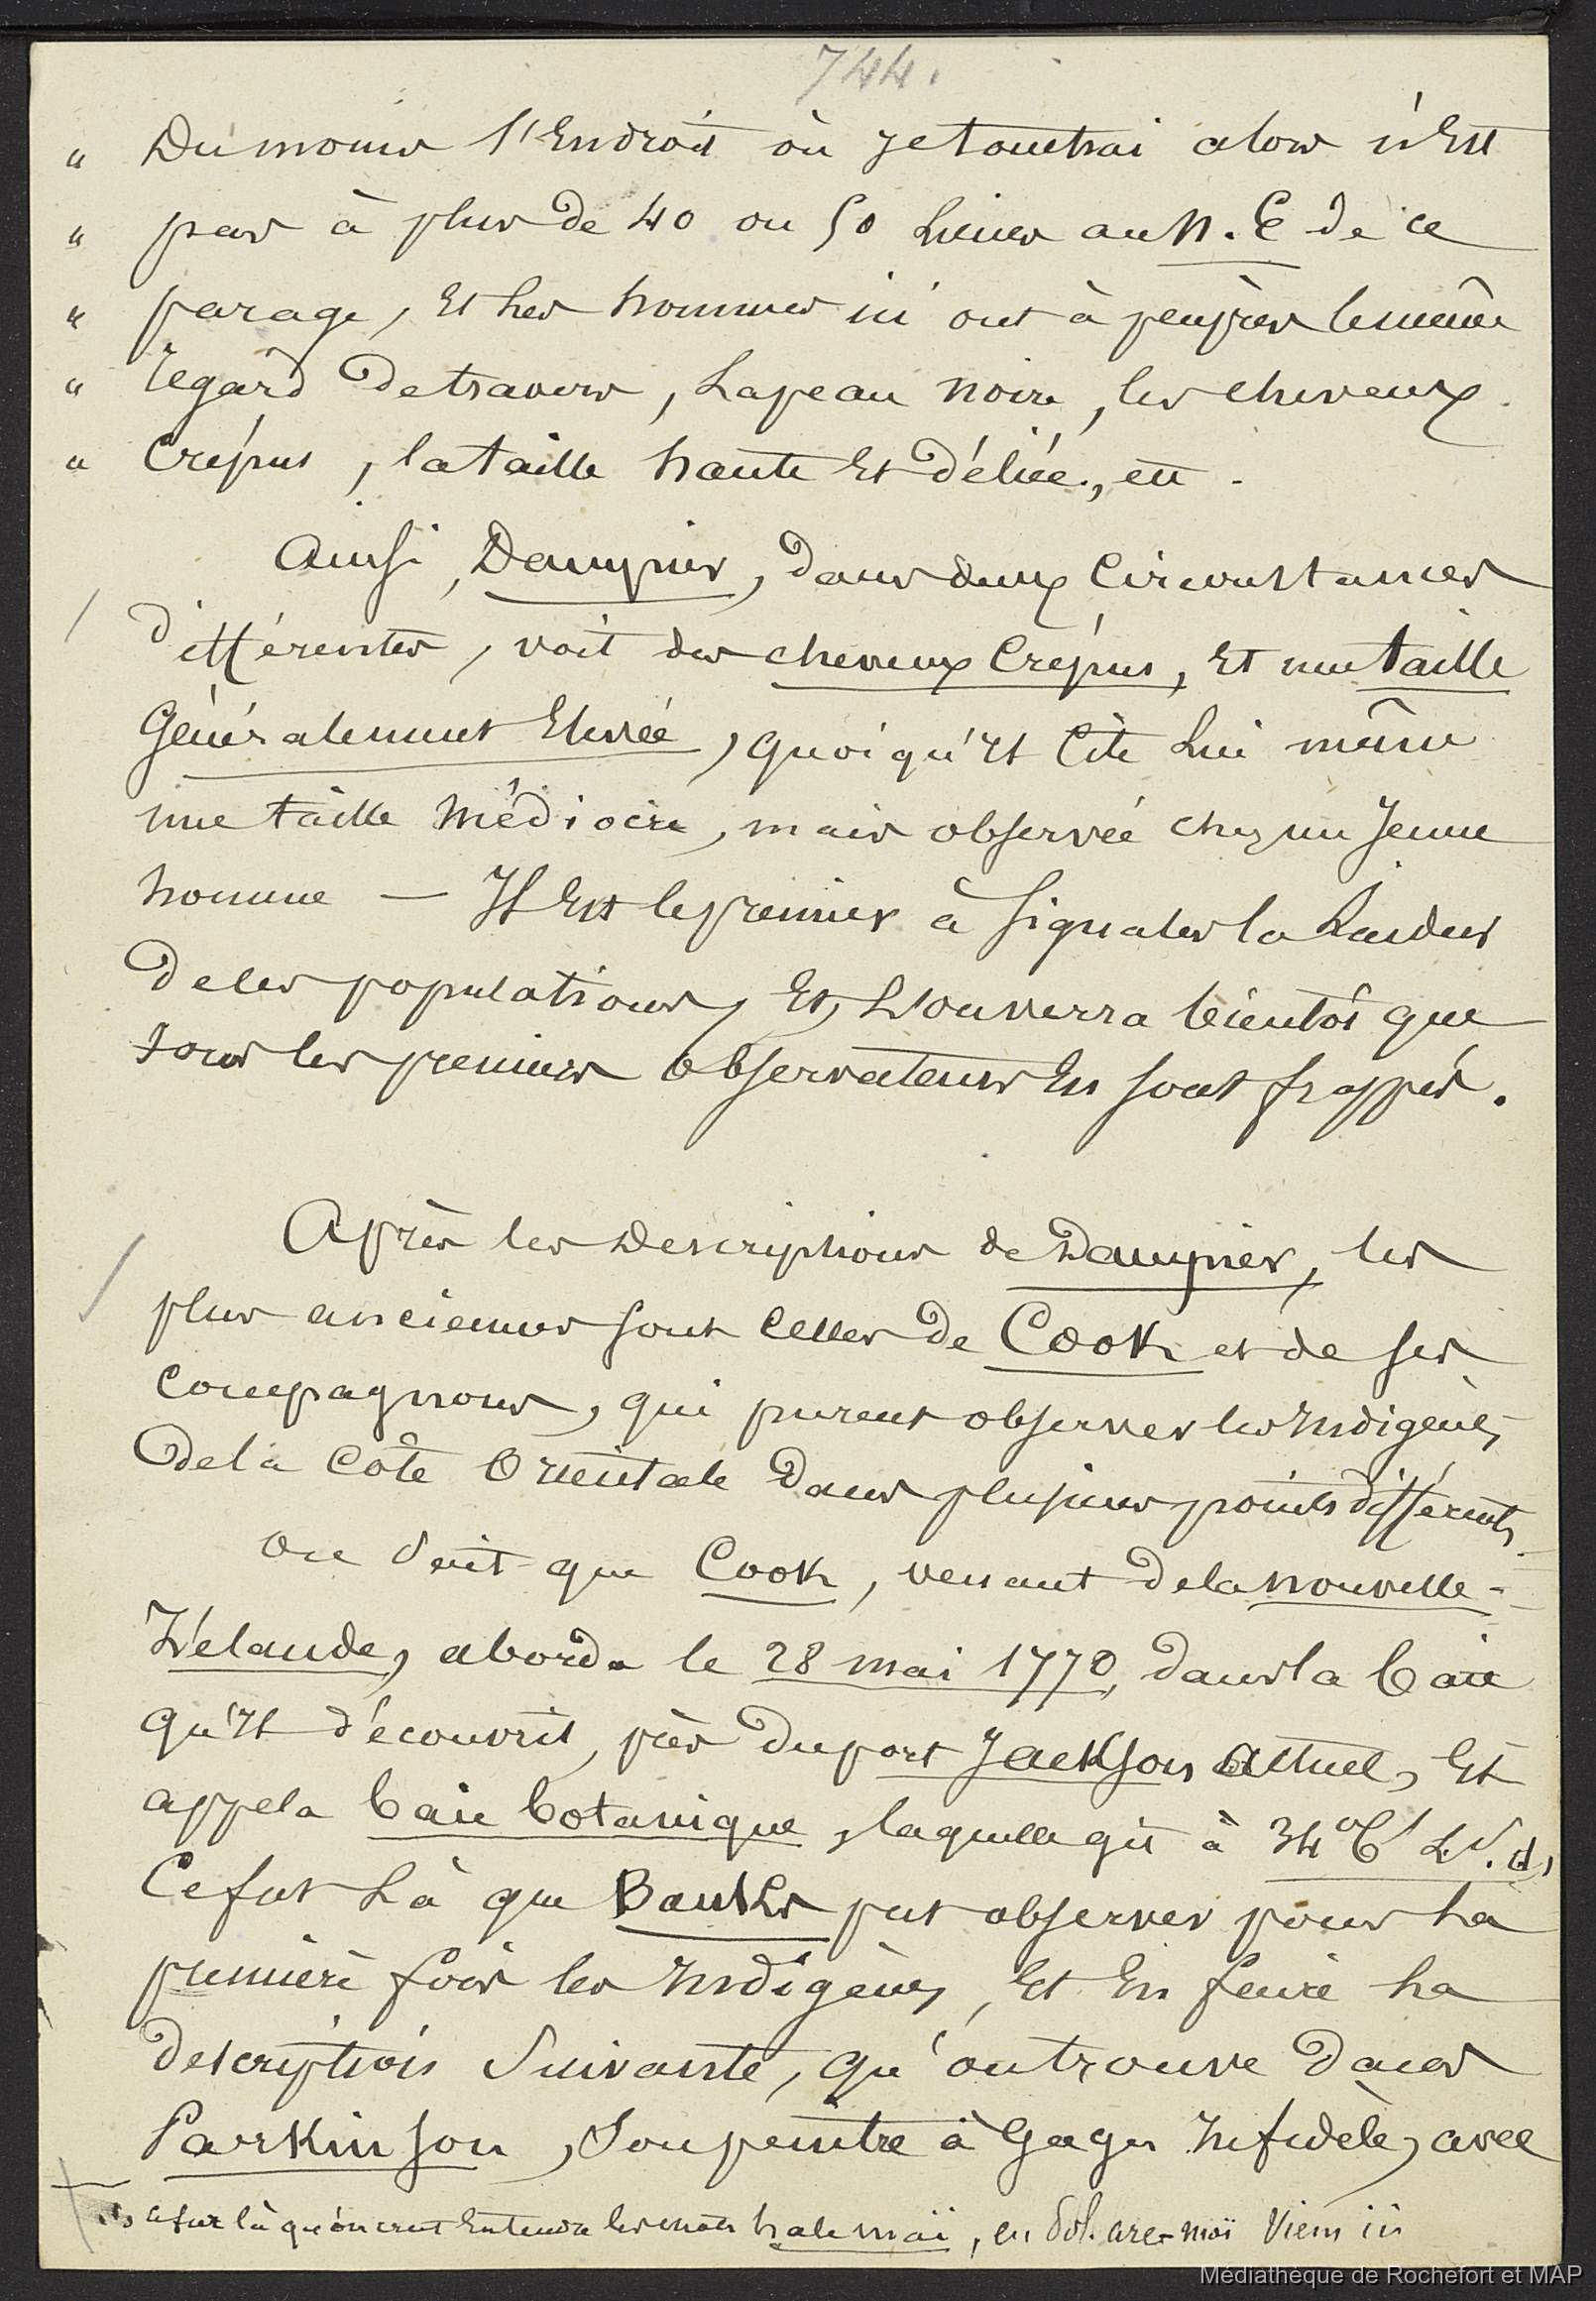 744.
" Du moins l'Endroit où je touchai alors n'Est
" pas à plus de 40 ou 50 Lieues au N. E de ce
" parage, Et Les hommes ici ont à peu près le même
" regard de travers, La peau noire, les cheveux
" Crépus, la taille haute Et déliée, etc.
Ainsi, Dampier, dans deux Circonstances
différentes, voit des cheveux Crépus, Et une taille
Généralement Elevée, quoiqu'Il Cite Lui même
une taille médiocre, mais observée chez un Jeune
homme — Il Est le premier à Signaler la Laideur
de ces populations, Et, L'on verra bientôt que
tous les premiers observateurs En sont frappés.
Après les Descriptions de Dampier, les
plus anciennes sont Celles de Cook et de ses
Compagnons, qui purent observer les Indigènes
de la Côte Orientale dans plusieurs points différents.
On Sait que Cook, venant de la nouvelle-
Zélande, aborda le 28 mai 1770, dans la baie
qu'Il découvrit, près du port Jackson actuel, Et
appela baie botanique, laquelle gît à 34° 6' L. S.
Ce fut Là que Banks put observer pour La
première fois les Indigènes, Et En faire La
description Suivante, qu'on trouve dans
Parkinson, Son peintre à Gages Infidèle, avec
ce fut là qu'on crut Entendre les mots halemaï, en Sol. are-maï Viens ici
Médiathèque de Rochefort et MAP